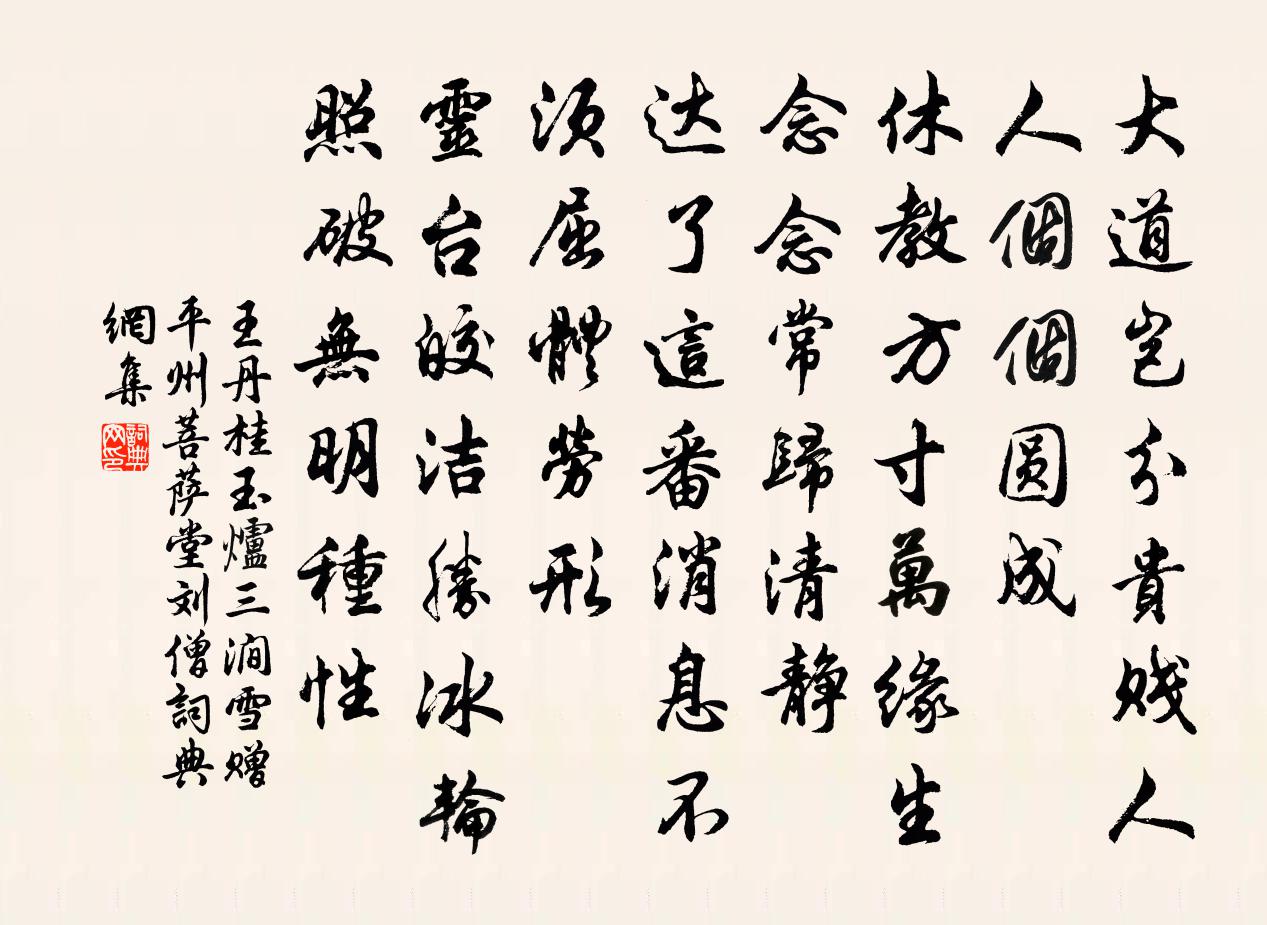 大道岂分貴贱人
人個個圆成
休教方寸萬缘生
念念常歸清静
达了這番消息不
须屈體勞形
靈台皎洁勝冰輪
照破無明種性
王丹桂玉爐三澗雪赠
平州菩萨堂刘僧詞典
網集
詞典网印